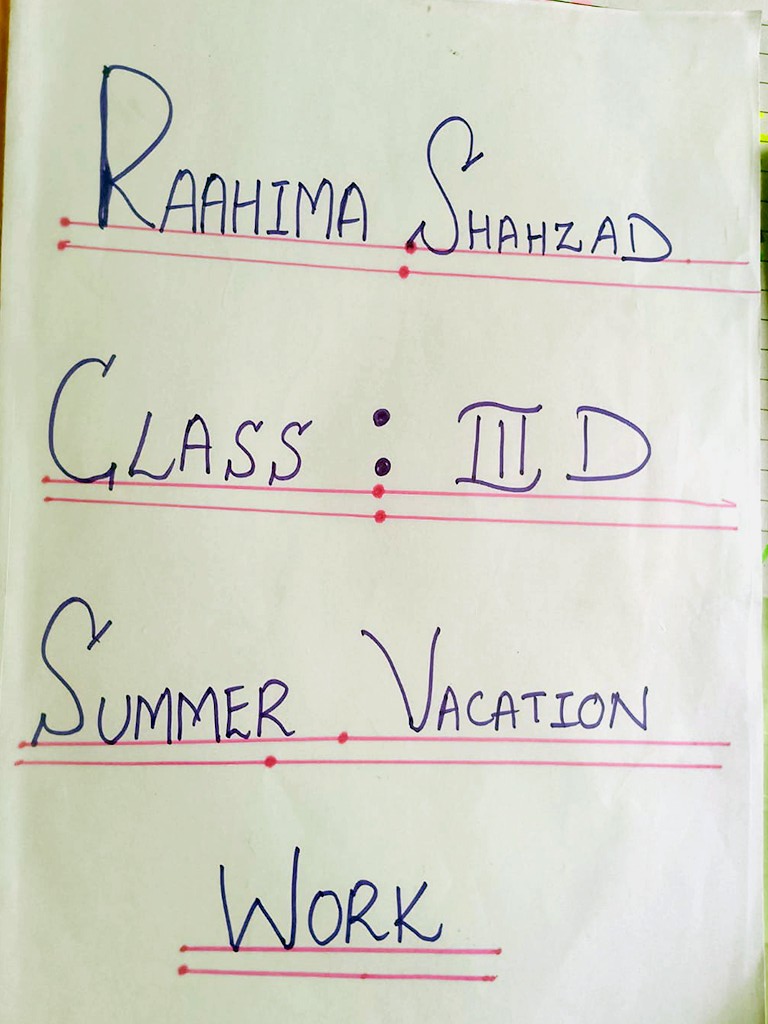 RAAHIMA SHAHZAD
CLASS : III D
SUMMER VACATION
WORK